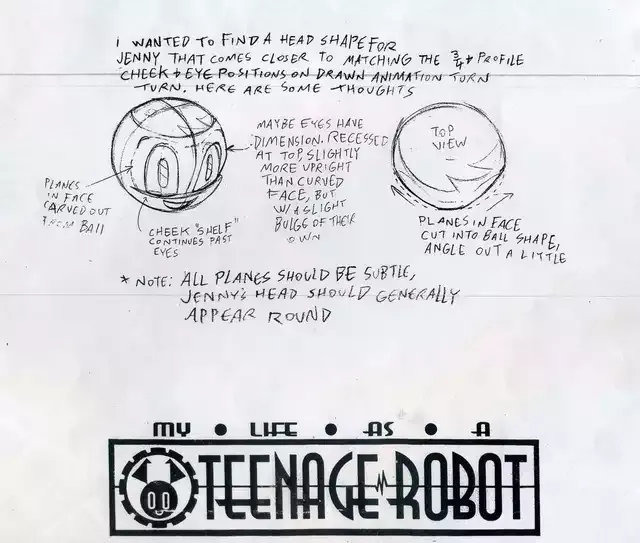 I WANTED TO FIND A HEAD SHAPE FOR
JENNY THAT COMES CLOSER TO MATCHING THE 3/4 & PROFILE
CHEEK & EYE POSITIONS ON DRAWN ANIMATION TURN
TURN. HERE ARE SOME THOUGHTS
PLANES
IN FACE
CARVED OUT
FROM BALL
CHEEK "SHELF"
CONTINUES PAST
EYES
MAYBE EYES HAVE
DIMENSION. RECESSED
AT TOP, SLIGHTLY
MORE UPRIGHT
THAN CURVED
FACE, BUT
W/A SLIGHT
BULGE OF THEIR
OWN
TOP
VIEW
PLANES IN FACE
CUT INTO BALL SHAPE,
ANGLE OUT A LITTLE
* NOTE: ALL PLANES SHOULD BE SUBTLE,
JENNY'S HEAD SHOULD GENERALLY
APPEAR ROUND
MY • LIFE • AS • A
TEENAGE ROBOT